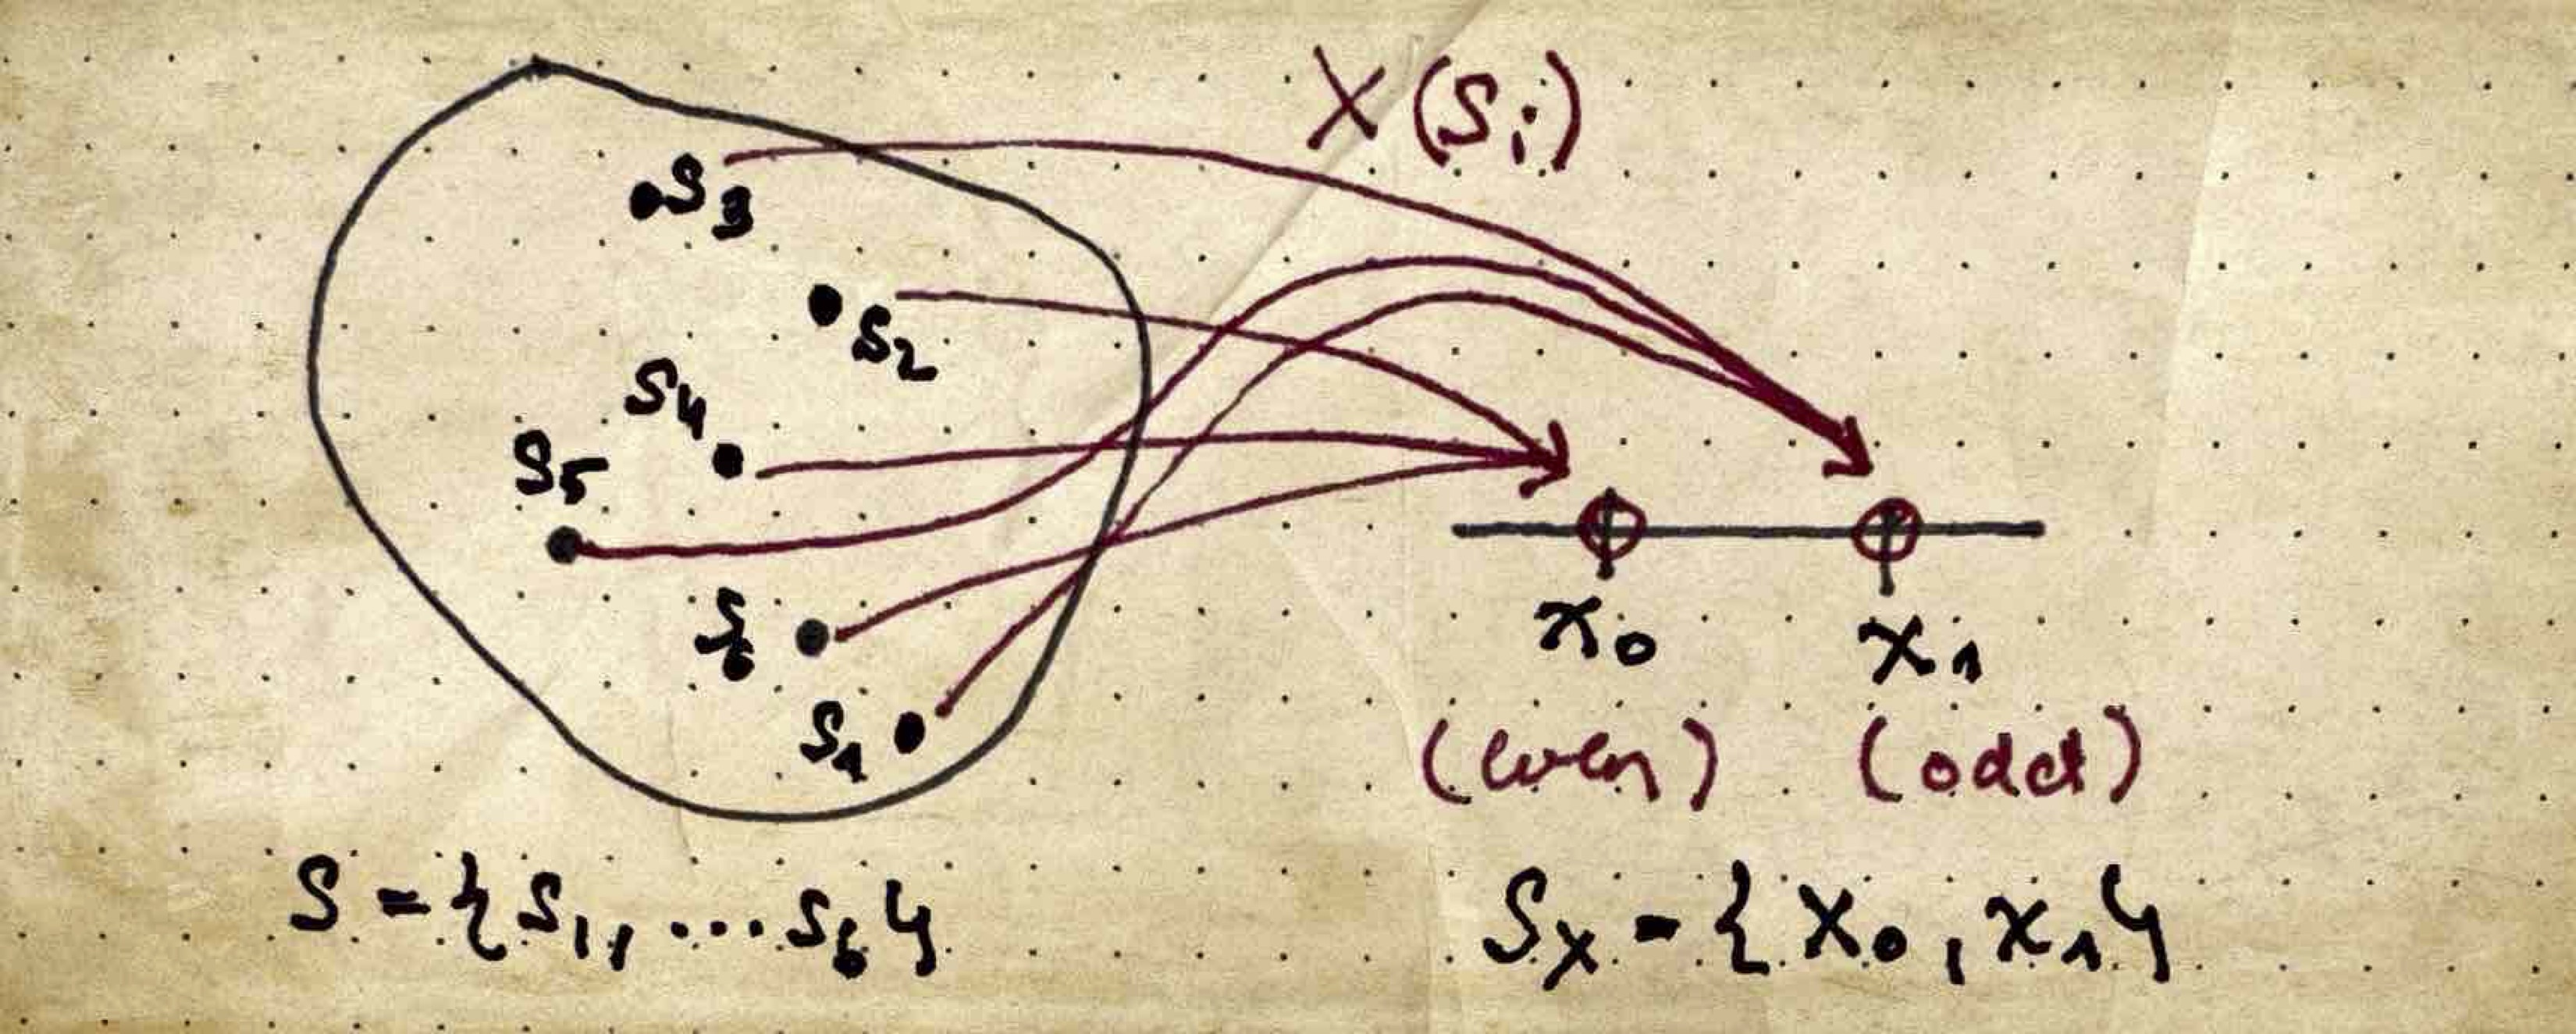 X(Si)
S3
S2
S4
S5
S6
S1
x0 x1
(even) (odd)
S = {S1, ... S6}
Sx = {x0, x1}